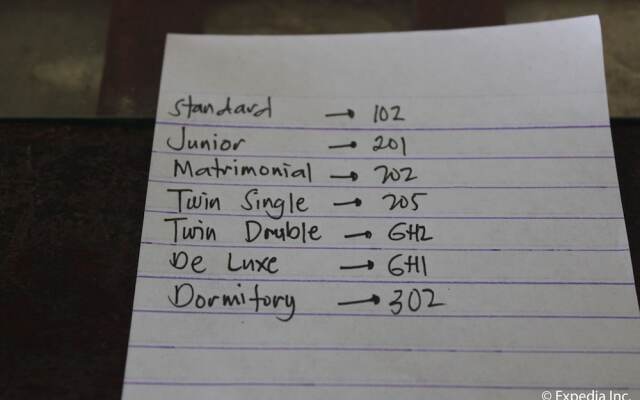 Standard → 102
Junior → 201
Matrimonial → 202
Twin Single → 205
Twin Double → GH2
De Luxe → GH1
Dormitory → 302
© Expedia Inc.